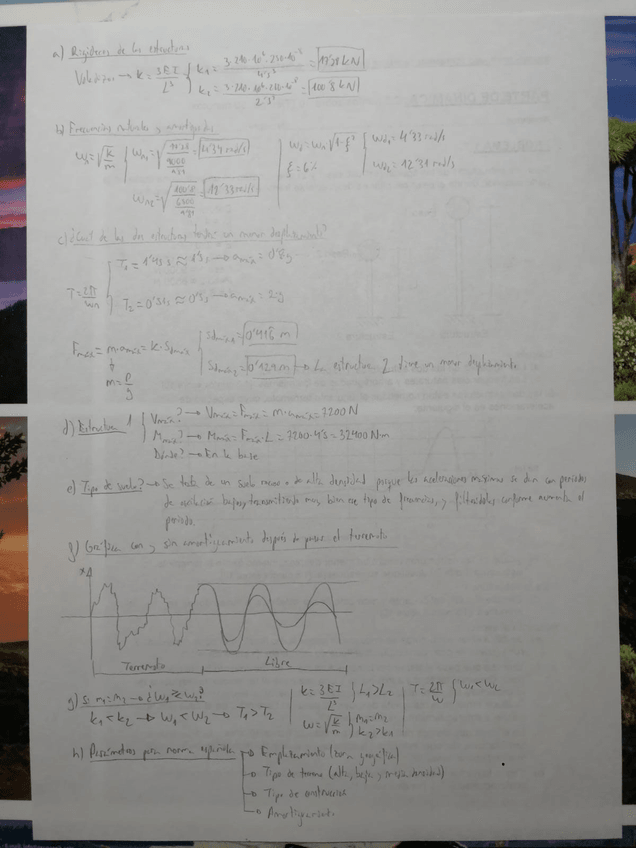 a) Rigideces de las estructuras
Voladizos → k = 3EI/L³ { k₁ = 3·210·10⁶·250·10⁻⁸/4'5³ = 17'28 kN
k₁ = 3·210·10⁶·250·10⁻⁸/2'5³ = 100'8 kN
b) Frecuencias naturales y amortiguadas
ωn = √(k/m) { ωn₁ = = 4'34 rad/s
ωn₂ = = 12'33 rad/s
ωd = ωn √1-ξ²
ξ = 6%
ωd₁ = 4'33 rad/s
ωd₂ = 12'31 rad/s
c) ¿Cuál de las dos estructuras tendrá un menor desplazamiento?
T = 2π/ωn
T₁ = 1'45 s ≈ 1'5 s → amáx = 0'8g
T₂ = 0'51 s ≈ 0'5 s → amáx = 2g
Fmáx = m·amáx = k·Sdmáx
m = P/g
Sdmáx₁ = 0'416 m
Sdmáx₂ = 0'129 m → La estructura 2 tiene un menor desplazamiento
d) Estructura 1 { Vmáx? → Vmáx = Fmáx = m·amáx = 7200 N
Mmáx? → Mmáx = Fmáx·L = 7200·4'5 = 32400 N·m
Dónde? → En la base
e) Tipo de suelo? → Se trata de un suelo rocoso o de alta densidad porque las aceleraciones máximas se dan con periodos
de oscilación bajos, transmitiendo muy bien ese tipo de frecuencias, y filtrándolas conforme aumenta el
periodo.
f) Gráfica con y sin amortiguamiento después de pasar el terremoto
x
Terremoto
Libre
g) Si m₁ = m₂ → ¿ω₁ ≷ ω₂?
k₁ < k₂ → ω₁ < ω₂ → T₁ > T₂
k = 3EI/L³ } L₁ > L₂
ω = √(k/m) { m₁ = m₂
k₂ > k₁
T = 2π/ω { ω₁ < ω₂
h) Parámetros para norma española → Emplazamiento (zona geográfica)
→ Tipo de terreno (alta, baja y media densidad)
→ Tipo de construcción
→ Amortiguamiento